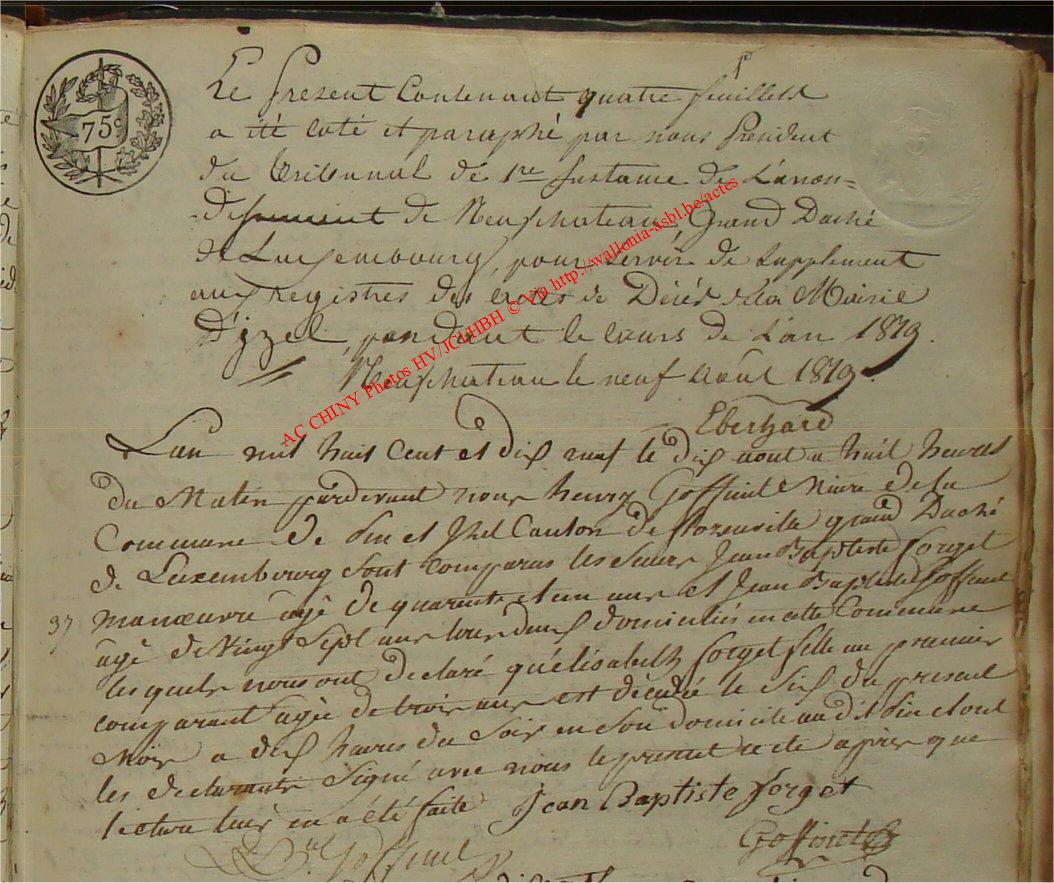 75c
Le présent contenant quatre feuillets
a été coté et paraphé par nous Président
du Tribunal de 1re Instance de L'arron=
=dissement de Neufchateau, Grand Duché
de Luxembourg, pour servir de supplement
aux registres des actes de Décès de la Mairie
D'izel, pendant le cours de L'an 1819.
Neufchateau le neuf Août 1819.
Eberhard
L'an mil huit Cent et dix neuf le dix aout a huit heures
du Matin pardevant nous henry Goffinet Maire de la
Commune de Pin et Izel Canton de florenville grand Duché
de Luxembourg sont comparus les sieurs Jean Baptiste forget
37 manœuvre âgé de quarante et un ans et Jean Baptiste Goffinet
âgé de vingt sept ans tous deux domiciliés en cette Commune
les quels nous ont declaré qu'élisabeth forget fille au premier
comparant agée de trois ans est décédée le six du present
mois a dix heures du soir en son domicile au dit Pin et ont
les declarants signé avec nous le present acte apres que
lecture leur en a été faite Jean Baptiste forget
Goffinet
Goffinet
AC CHINY Photos HV/JCLHBH © Via http://wallonia-asbl.be/actes